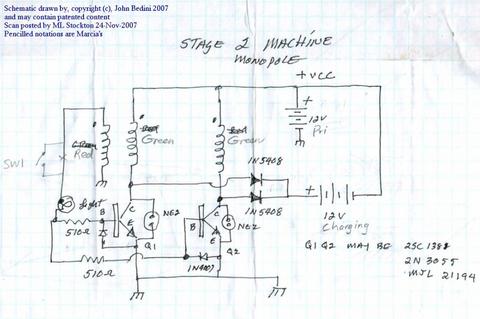 Schematic drawn by, copyright (c), John Bedini 2007
and may contain patented content
Scan posted by ML Stockton 24-Nov-2007
Pencilled notations are Marcia's
STAGE 2 MACHINE
MONOPOLE
+VCC
+
12V
Pri
Red
Green
Green
SW1
1N5408
+
1N5408
12V
Charging
light
510Ω
B
C
E
NE2
Q1
B
C
E
NE2
Q2
510Ω
1N4007
Q1 Q2 MAY BE 2SC1388
2N 3055
MJL 21194